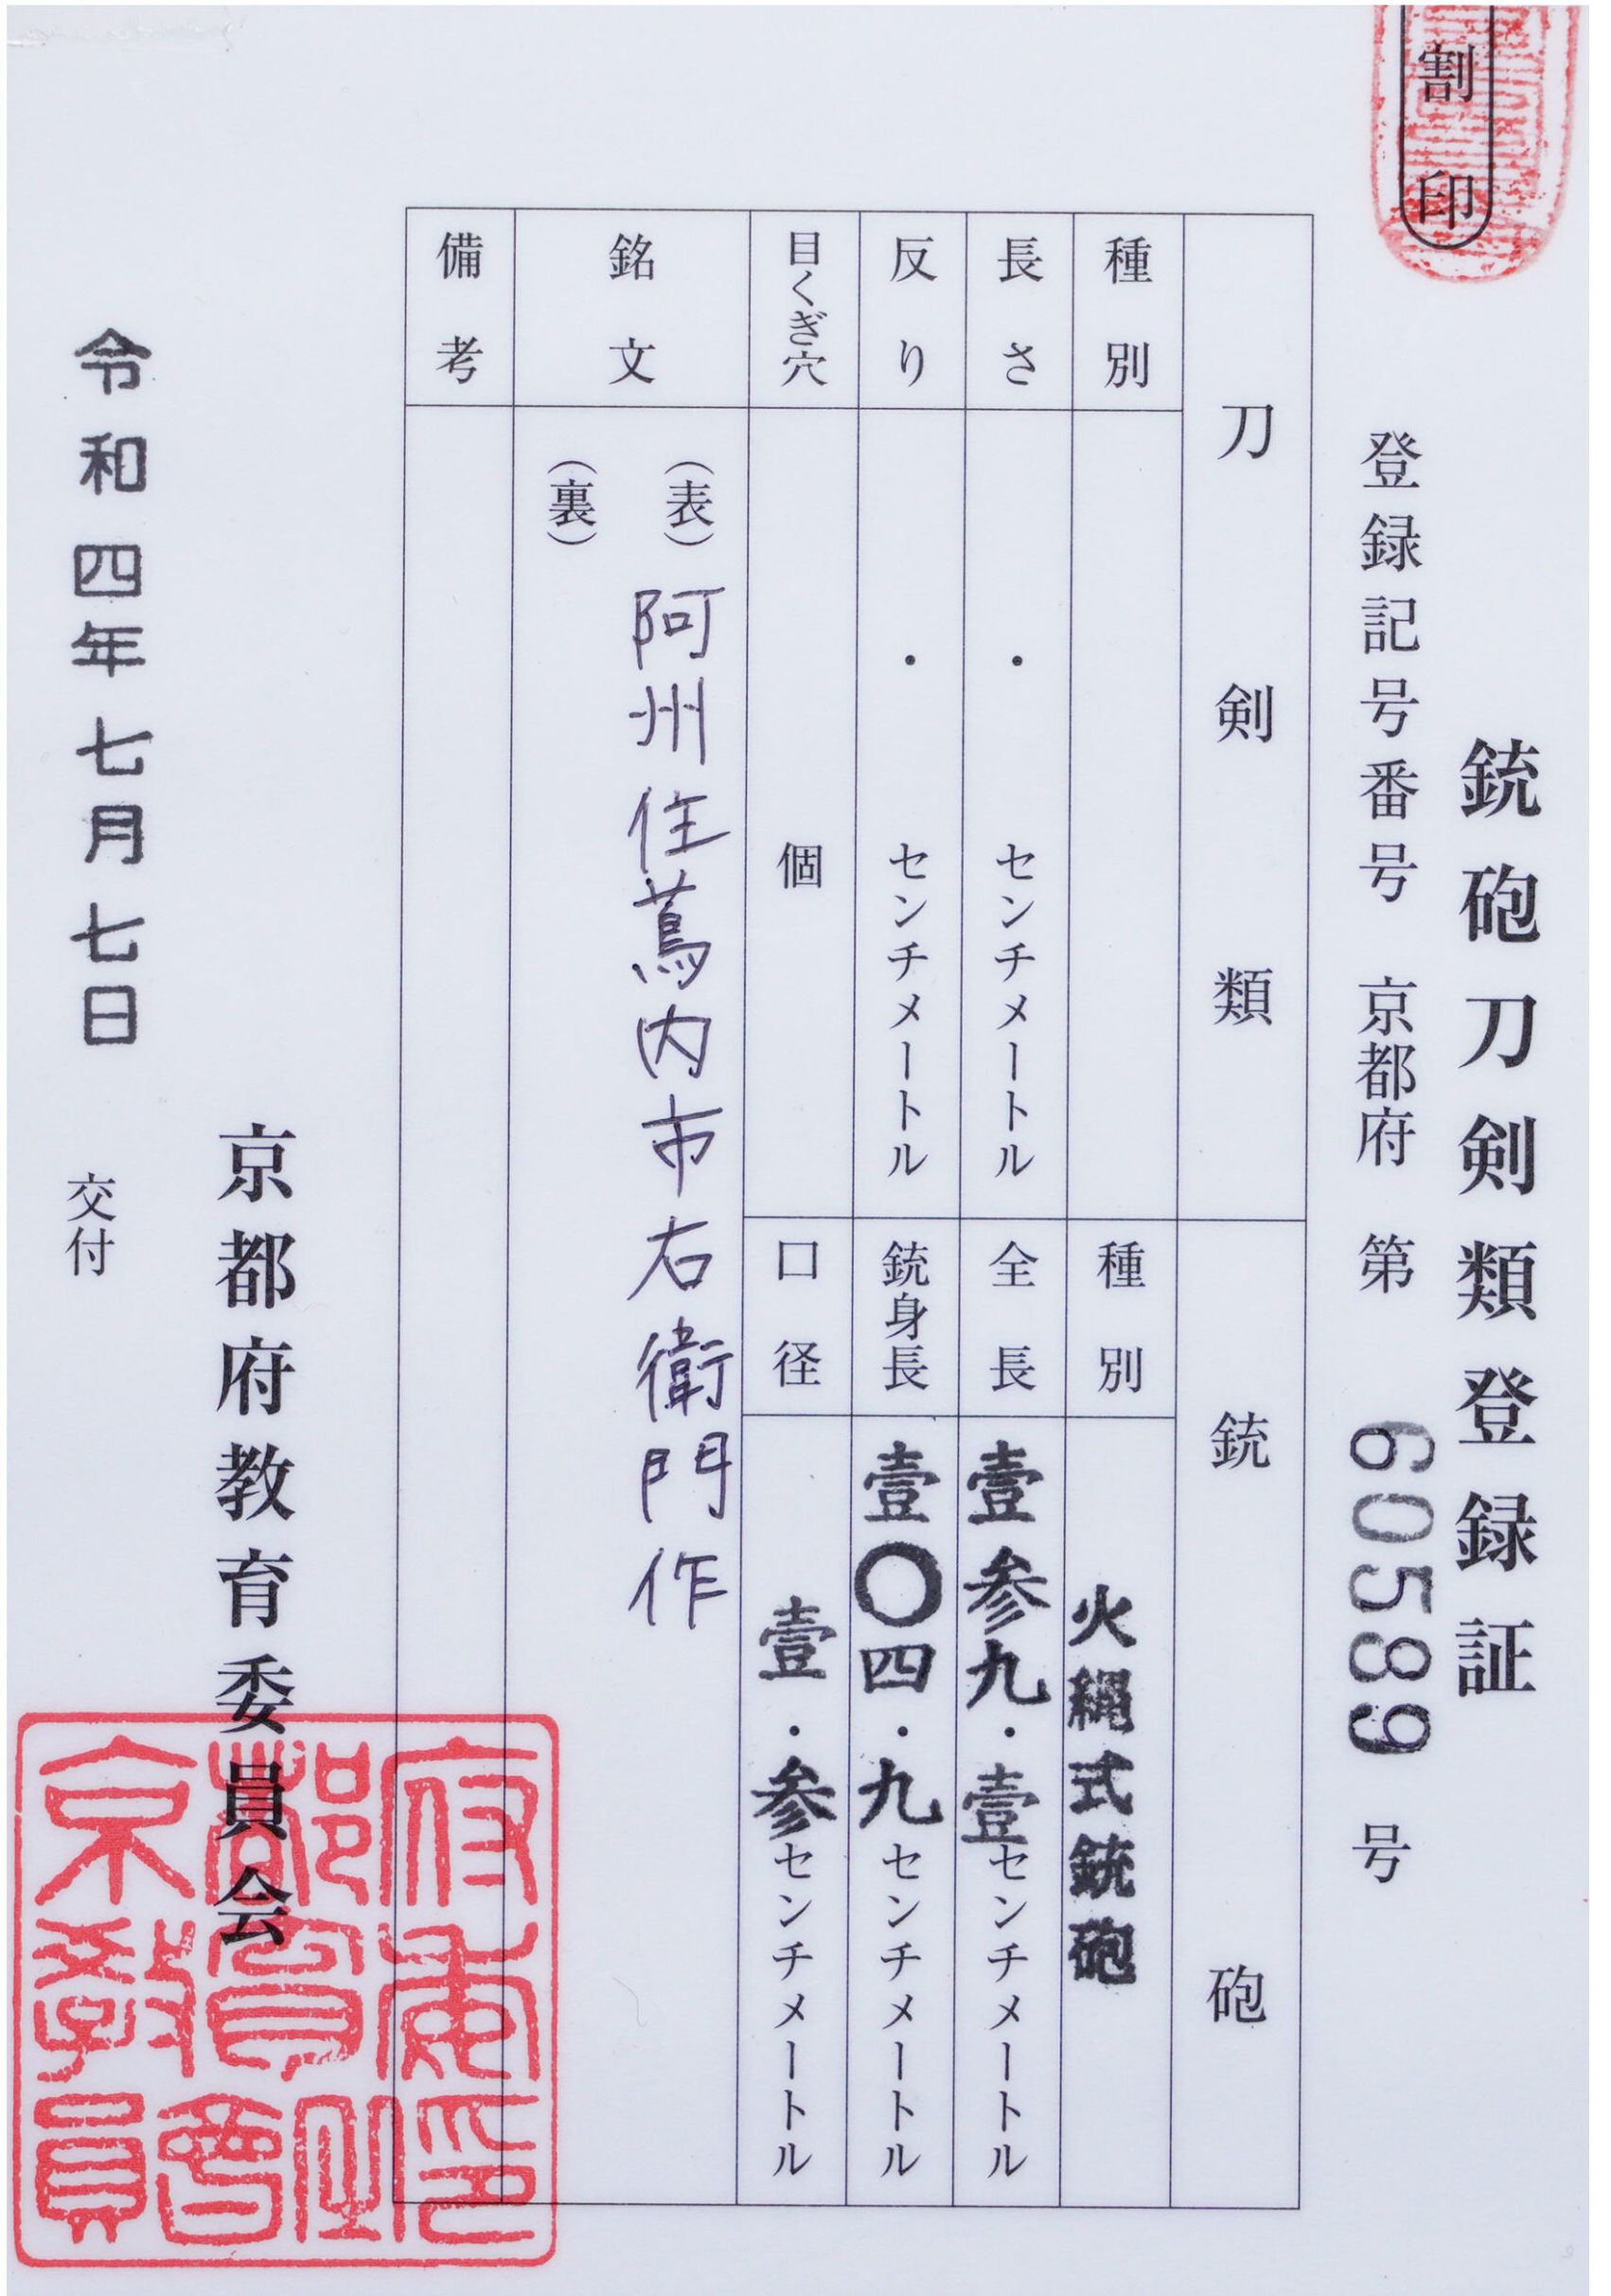 割印
銃砲刀剣類登録証
登録記号番号 京都府 第 60589 号
刀剣類
銃砲
種別
種別 火縄式銃砲
長さ ・ センチメートル
全長 壹参九・壹センチメートル
反り ・ センチメートル
銃身長 壹〇四・九センチメートル
目くぎ穴 個
口径 壹・参センチメートル
銘文
(表) 阿州住蔦内市右衛門作
(裏)
備考
京都府教育委員会
令和四年七月七日 交付